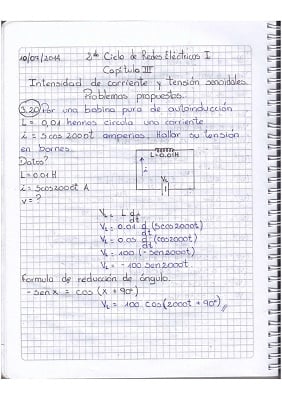 10/07/2014 2do Ciclo de Redes Eléctricos I
Capítulo III
Intensidad de corriente y tensión senoidales
Problemas propuestos.
3.20) Por una bobina pura de autoinducción
L = 0,01 henrios circula una corriente
i = 5cos 2000t amperios. Hallar su tensión
en bornes.
Datos?
L = 0.01 H
i = 5cos 2000t A
v = ?
L = 0.01H
i
VL
VL = L di/dt
VL = 0.01 d/dt (5cos 2000t)
VL = 0.05 d/dt (cos 2000t)
VL = 100 (-sen 2000t)
VL = -100 sen 2000t
Formula de reducción de ángulo.
-sen x = cos (x + 90°)
VL = 100 cos (2000t + 90°)